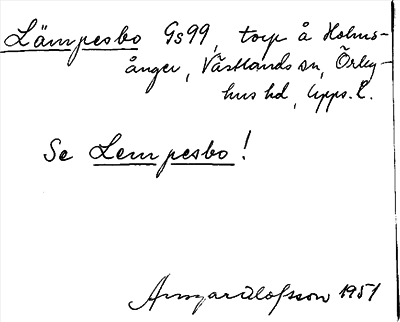 Lämpesbo Gs99, torp å Holms-
ånger, Västlands sn, Örby-
hus hd, Upps. l.
Se Lempesbo!
Ansgar Olofsson 1951